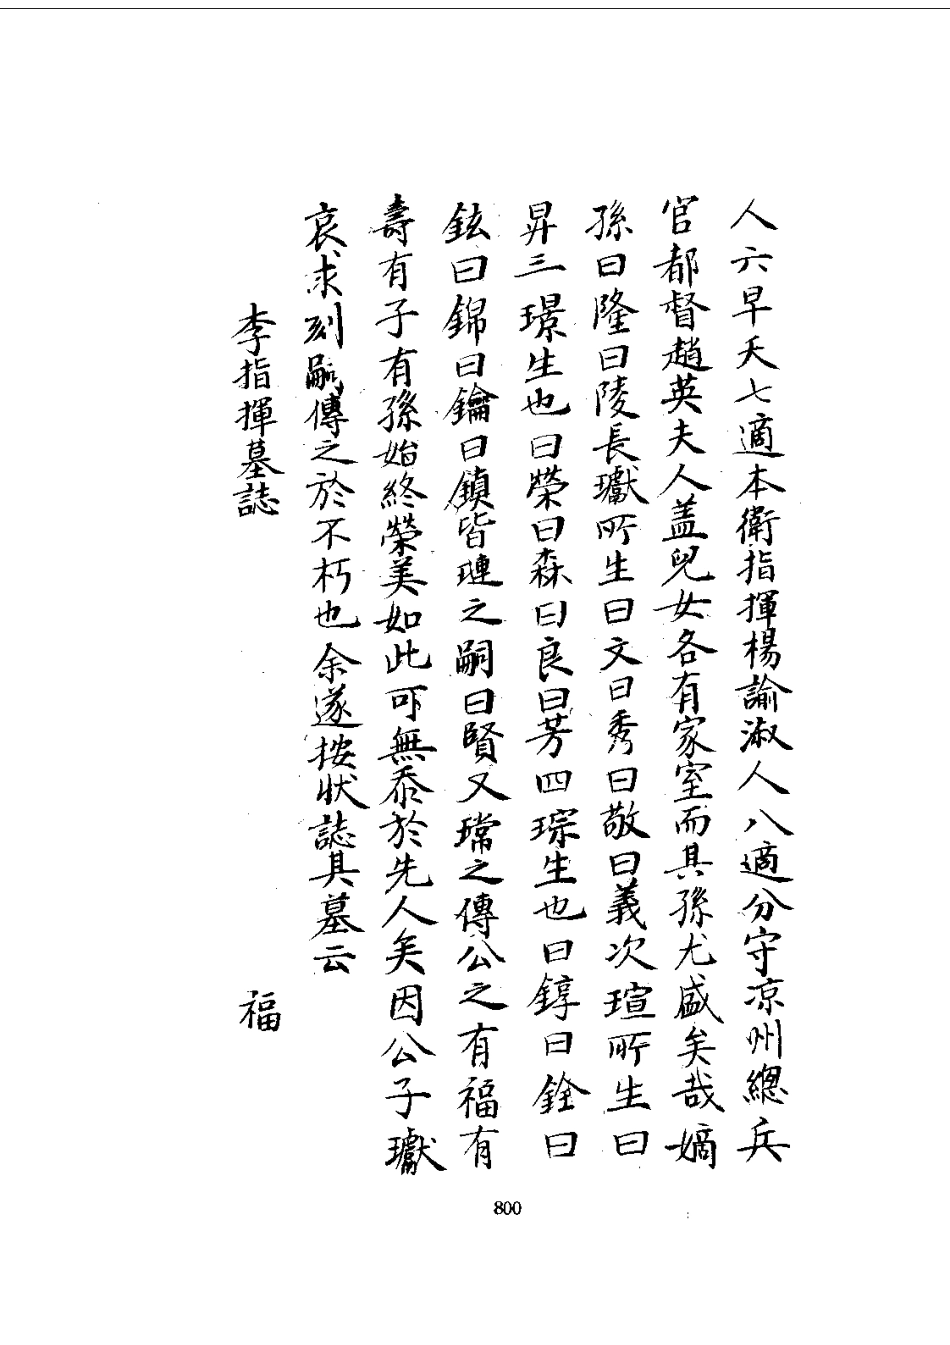 人六早夭七適本衛指揮楊諭淑人八適分守凉州總兵
官都督趙英夫人盖兒女各有家室而其孫尤盛矣哉嫡
孫曰隆曰陵長瓛所生曰文曰秀曰敬曰義次瑄所生曰
昇三璟生也曰榮曰森曰良曰芳四琮生也曰錞曰銓曰
鉉曰錦曰鑰曰鎮皆璉之嗣曰賢又瑺之傳公之有福有
壽有子有孫始終榮美如此可無忝於先人矣因公子瓛
哀求刻嗣傳之於不朽也余遂按狀誌其墓云
李指揮墓誌 福
800